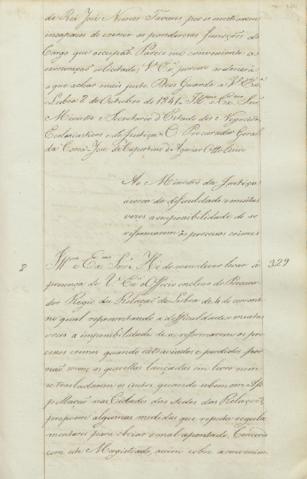 do Réo José Nunes Tavares por se mostrar
incapaz de exercer as ponderosas funcções do
Cargo que occupa. Parece-me conveniente a
exoneração solicitada; V. Exª porem ordenará
o que achar mais justo. Deos Guarde a V. Exª
Lisboa 2 de Outubro de 1841. Illmo e Exmo Snr
Ministro e Secretario d'Estado dos Negocios
Ecclesiasticos e de Justiça. O Procurador Geral
da Corôa José de Cupertino d'Aguiar Ottolini
Ao Ministro da Justiça
ácerca da difficuldade e muitas
vezes a impossibilidade de se
reformarem os processos crimes
2
Illmo e Exmo Snr. Hei de mandar levar á
329
presença de V. Exª o Officio incluso do Procurador
Regio da Relação de Lisboa de 4 do corrente
no qual representando a difficuldade e muitas
vezes a impossibilidade de se reformarem os pro-
cessos crimes quando extraviados e perdidos por
não serem as querellas lançadas em livro nem
se trasladarem os autos, quando sobem em
nas Cidades das sedes das Relações
propoem algumas medidas que reputa regula-
mentares para obviar o mal apontado. Concordo
com este Magistrado, assim sobre a